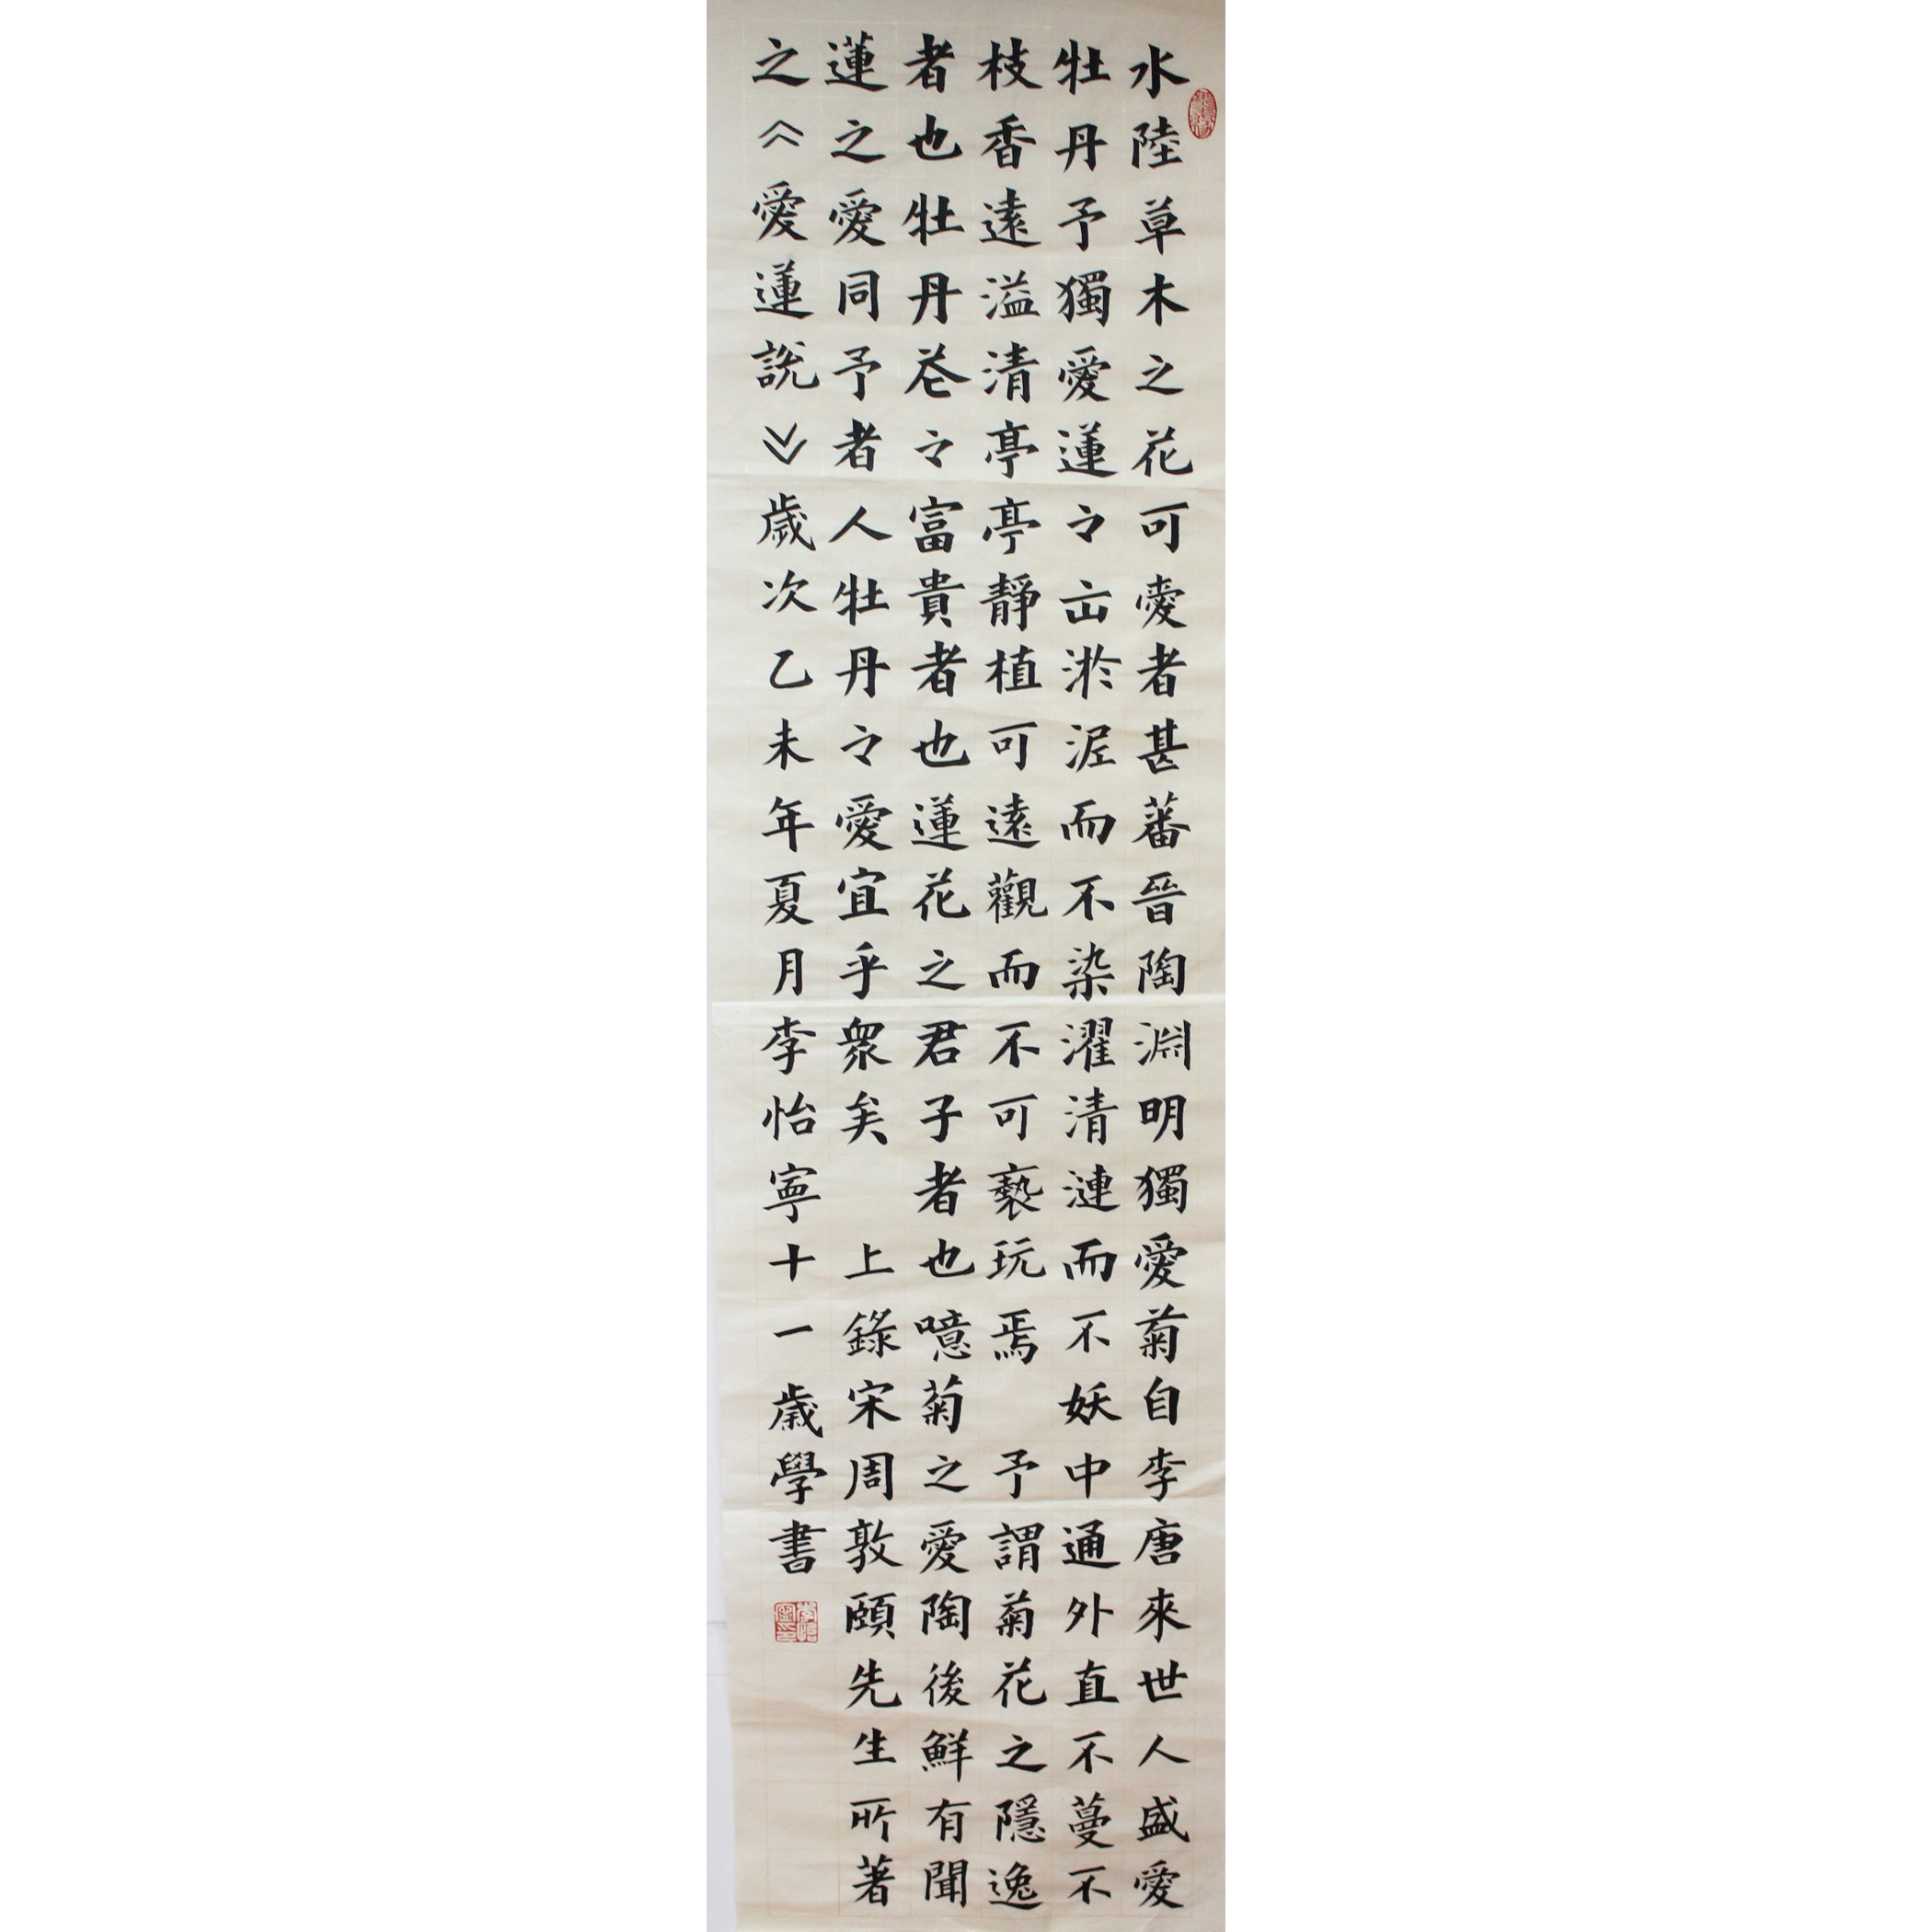 水陸草木之花可愛者甚蕃晉陶淵明獨愛菊自李唐來世人盛愛
牡丹予獨愛蓮々出淤泥而不染濯清漣而不妖中通外直不蔓不
枝香遠溢清亭亭靜植可遠觀而不可褻玩焉 予謂菊花之隱逸
者也牡丹花々富貴者也蓮花之君子者也噫菊之愛陶後鮮有聞
蓮之愛同予者人牡丹々愛宜乎眾矣 上錄宋周敦頤先生所著
之《愛蓮說》歲次乙未年夏月李怡寧十一歲學書